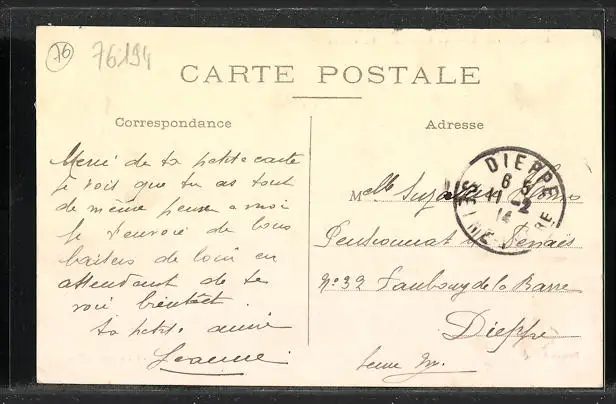 76
76194
CARTE POSTALE
Correspondance
Adresse
Merci de ta petite carte
je vois que tu as tout
de même pensé a moi
Je t'envoie de bons
baisers de loin en
attendant de te
voir bientôt
ta petite amie
Jeanne
DIEPPE
6 5
11 -2
14
SEINE-INFRE
Mlle Suzanne
Pensionnat
No 32 Faubourg de la Barre
Dieppe
Seine Infre